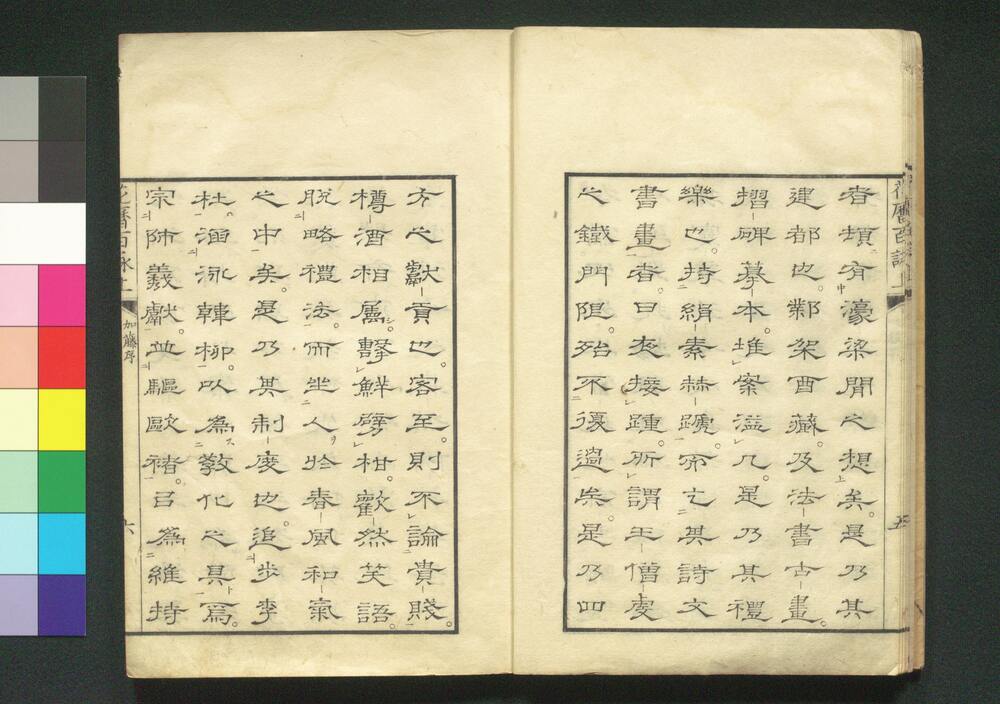 花曆百詠上
五
者頗有濠梁間之想矣。是乃其
建都也。鄴架酉藏。及法書古畫。
摺碑摹本。堆案溢几。是乃其禮
樂也。持絹素赫蹏。而乞其詩文
書畫者。日夜接踵。所謂王僧虔
之鐵門限。殆不復過矣。是乃四
方之獻貢也。客至。則不論貴賤。
樽酒相屬。擘鮮劈柑。歡然笑語。
脫略禮法。而坐人於春風和氣
之中矣。是乃其制度也。追步李
杜。涵泳韓柳。以爲敎化之具焉。
宗師羲獻。並驅歐褚。以爲維持
花曆百詠上
加藤序
六